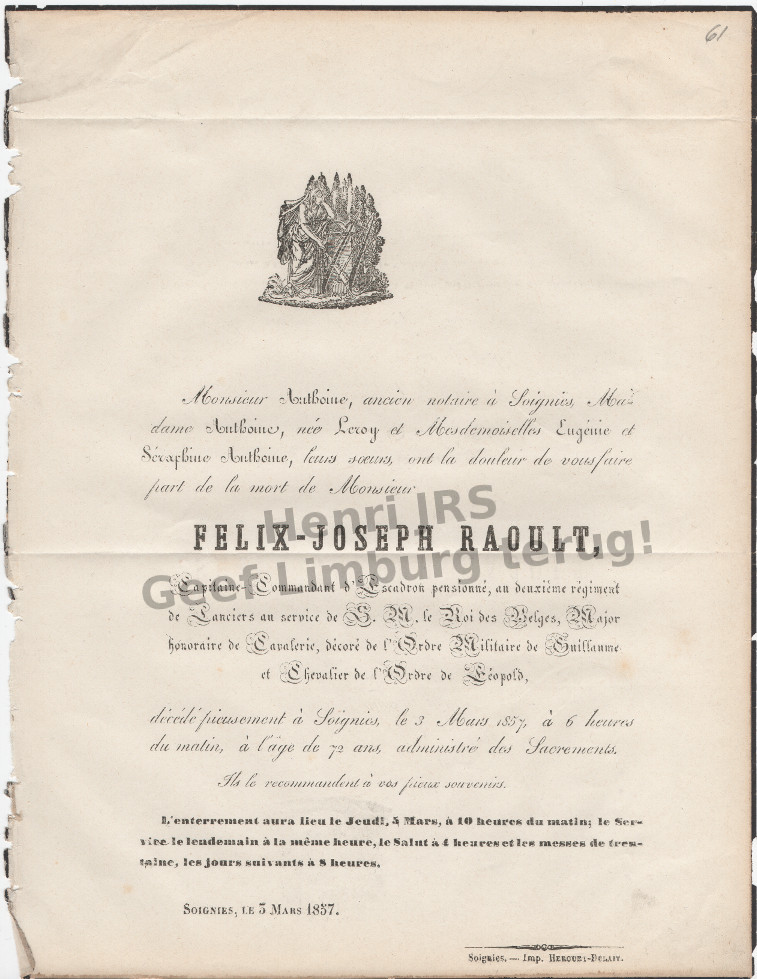 61
Monsieur Anthoine, ancien notaire à Soignies, Ma-
dame Anthoine, née Leroy et Mesdemoiselles Eugénie et
Séraphine Anthoine, leurs sœurs, ont la douleur de vous faire
part de la mort de Monsieur
Henri JRS
FELIX-JOSEPH RAOULT,
Geef Limburg terug!
Capitaine-Commandant d'Escadron pensionné, au deuxième régiment
de Lanciers au service de S. M. le Roi des Belges, Major
honoraire de Cavalerie, décoré de l'Ordre Militaire de Guillaume
et Chevalier de l'Ordre de Léopold,
décédé pieusement à Soignies, le 3 Mars 1857, à 6 heures
du matin, à l'âge de 72 ans, administré des Sacrements.
Ils le recommandent à vos pieux souvenirs.
L'enterrement aura lieu le Jeudi, 5 Mars, à 10 heures du matin; le Ser-
vice le lendemain à la même heure, le Salut à 4 heures et les messes de tren-
taine, les jours suivants à 8 heures.
SOIGNIES, LE 3 MARS 1857.
Soignies, — Imp. HERCUET-DELAIT.